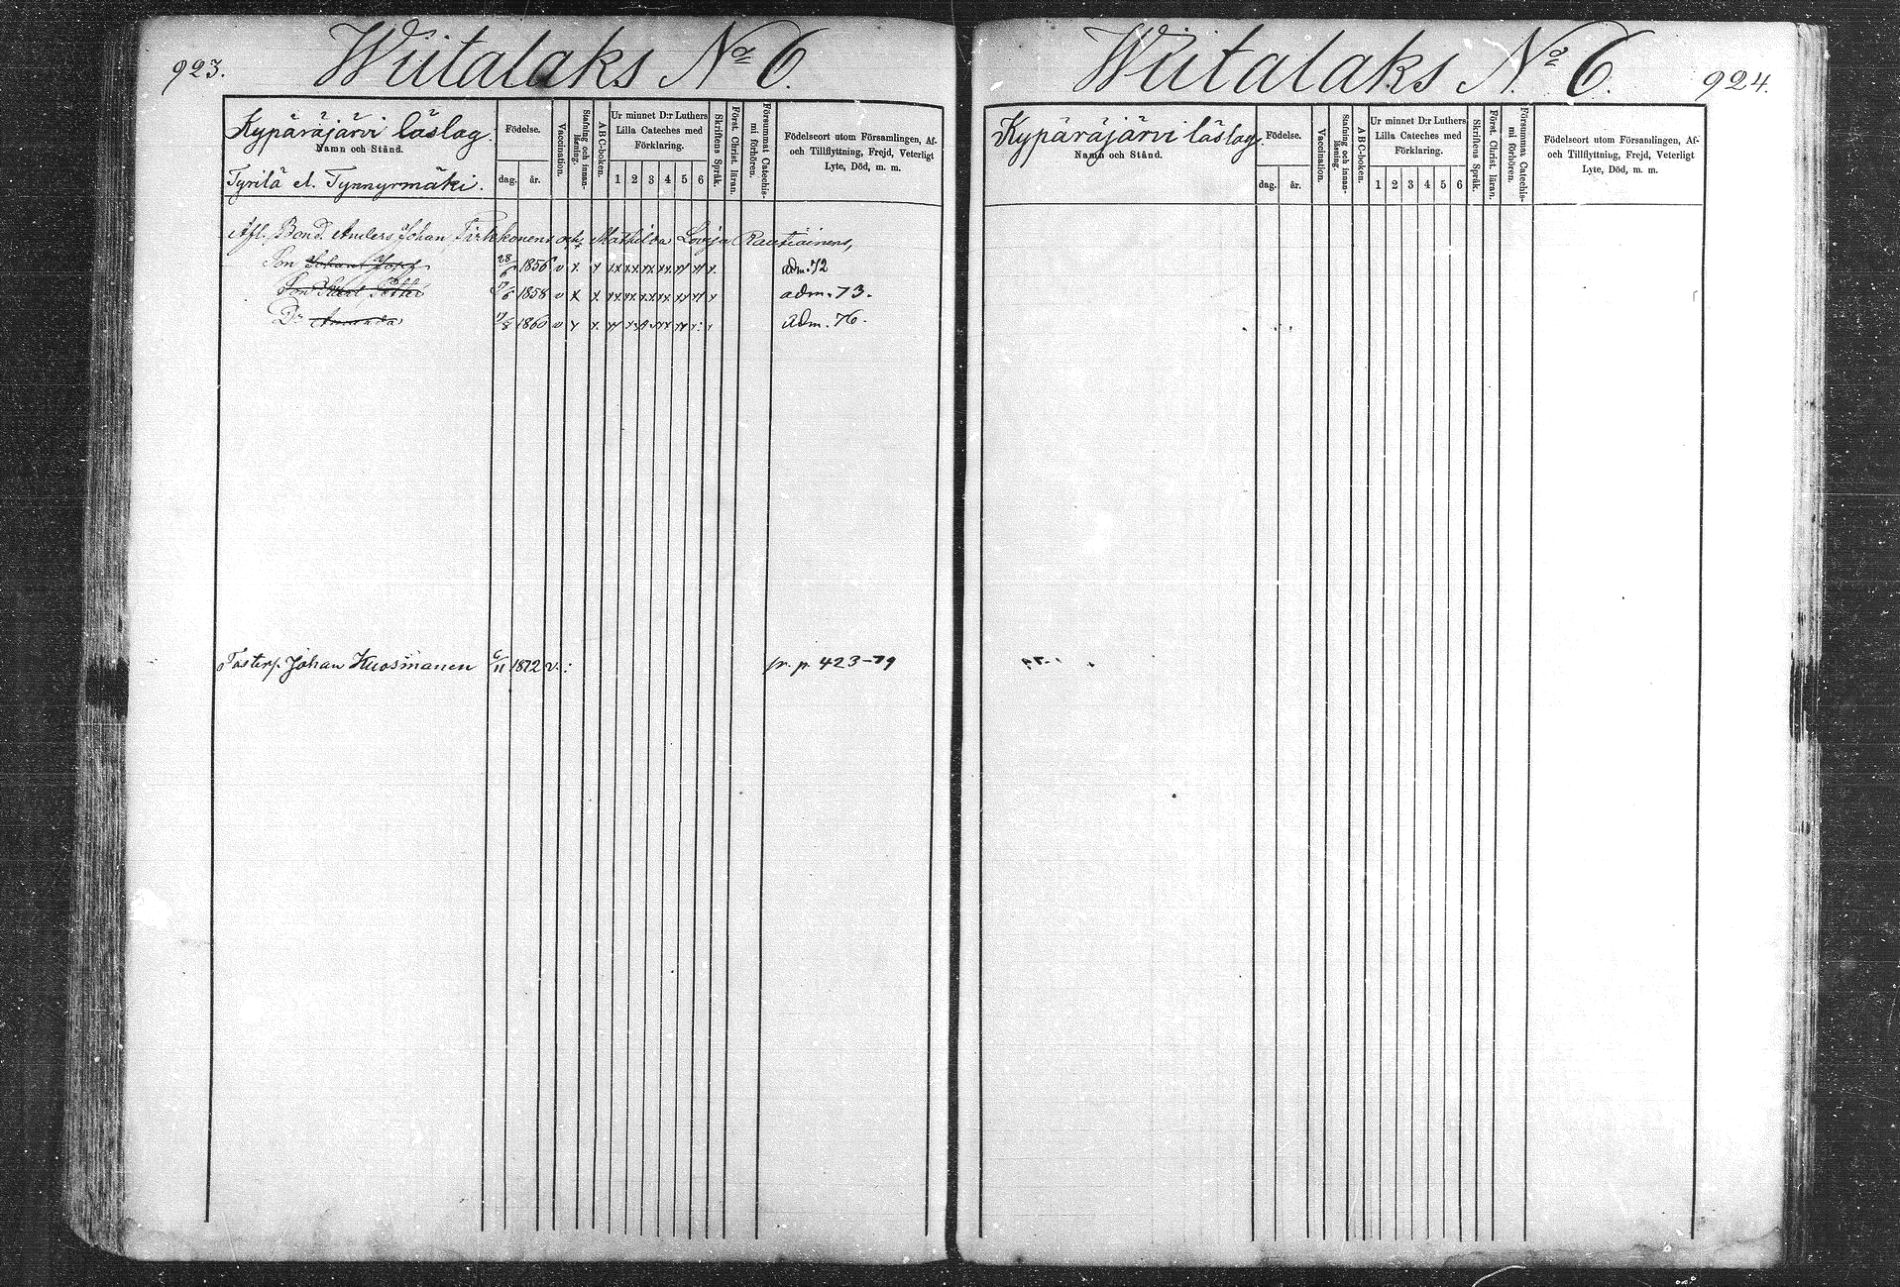 923.
Wiitalaks No 6.
Kypäräjärvi läslag.
Namn och Stånd.
Tyrilä el. Tynnyrmäki.
Födelse.
dag. år.
Vaccination.
Stafning och innan-
läsning.
ABC-boken.
Ur minnet D:r Luthers
Lilla Cateches med
Förklaring.
1 2 3 4 5 6
Skriftens Språk.
Först. Christ. läran.
Försummat Catechis-
mi förhören.
Födelseort utom Församlingen, Af-
och Tillflyttning, Frejd, Veterligt
Lyte, Död, m. m.
Afl. Bond. Anders Johan Tirkkonens och Mathilda Lovisa Rautiainens,
Son Johan Josef 28/6 1856 v x x xx xx xx xx xx xx x adm. 72
Son 1858 v x x xx xx xx xx xx xx x adm. 73.
Dr Amanda 1860 v x x adm. 76.
Fosters. Johan Kuosmanen 6/11 1872 v. : fr. p. 423-79
Wiitalaks No 6.
924.
Kypäräjärvi läslag.
Namn och Stånd.
Födelse.
dag. år.
Vaccination.
Stafning och innan-
läsning.
ABC-boken.
Ur minnet D:r Luthers
Lilla Cateches med
Förklaring.
1 2 3 4 5 6
Skriftens Språk.
Först. Christ. läran.
Försummat Catechis-
mi förhören.
Födelseort utom Församlingen, Af-
och Tillflyttning, Frejd, Veterligt
Lyte, Död, m. m.